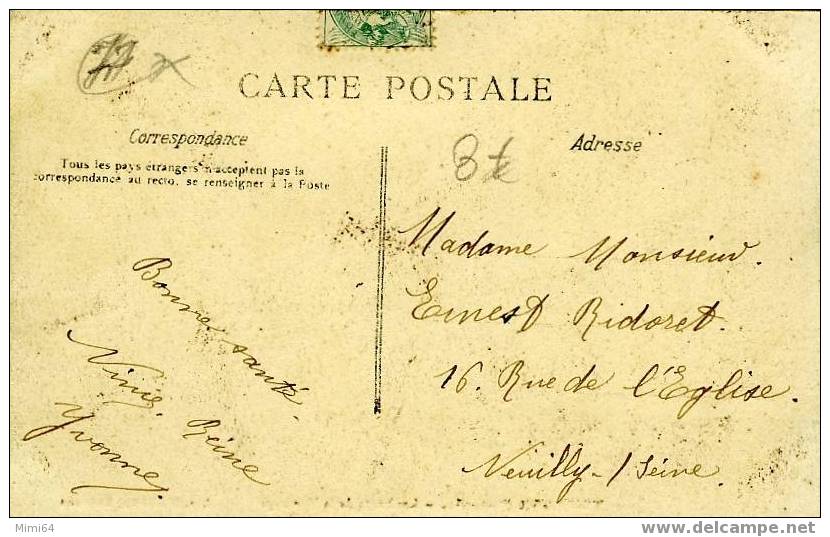 77
CARTE POSTALE
Correspondance
Adresse
Tous les pays étrangers n'acceptent pas la
correspondance au recto, se renseigner à la Poste
Madame Monsieur.
Ernest Ridoret.
16. Rue de l'Eglise.
Neuilly-/Seine.
Bonne santé.
Ninie. Reine
Yvonne.
Mimi64
delcampe.net